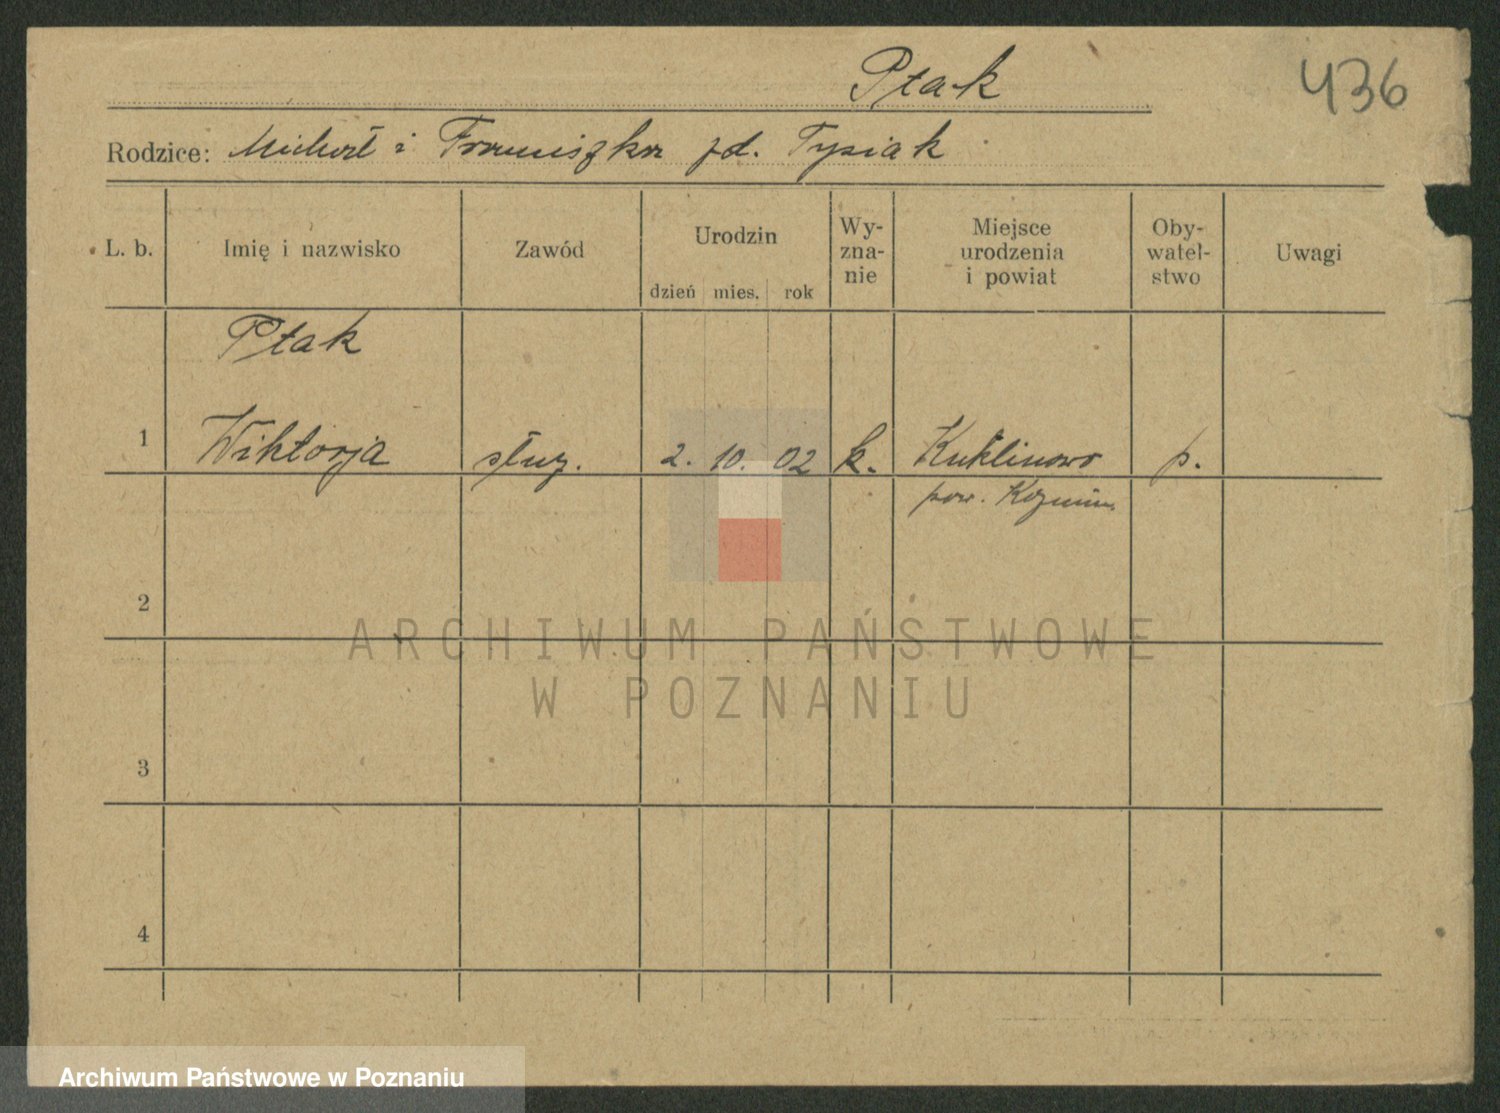 Ptak
436
Rodzice: Michał i Franciszka zd. Tysiak
L. b. Imię i nazwisko Zawód Urodzin Wy-zna-nie Miejsce urodzenia i powiat Oby-watel-stwo Uwagi
dzień mies. rok
Ptak
1 Wiktorja służ. 2. 10. 02 k. Kuklinowo p.
pow. Koźmin
2
ARCHIWUM PAŃSTWOWE
W POZNANIU
3
4
Archiwum Państwowe w Poznaniu